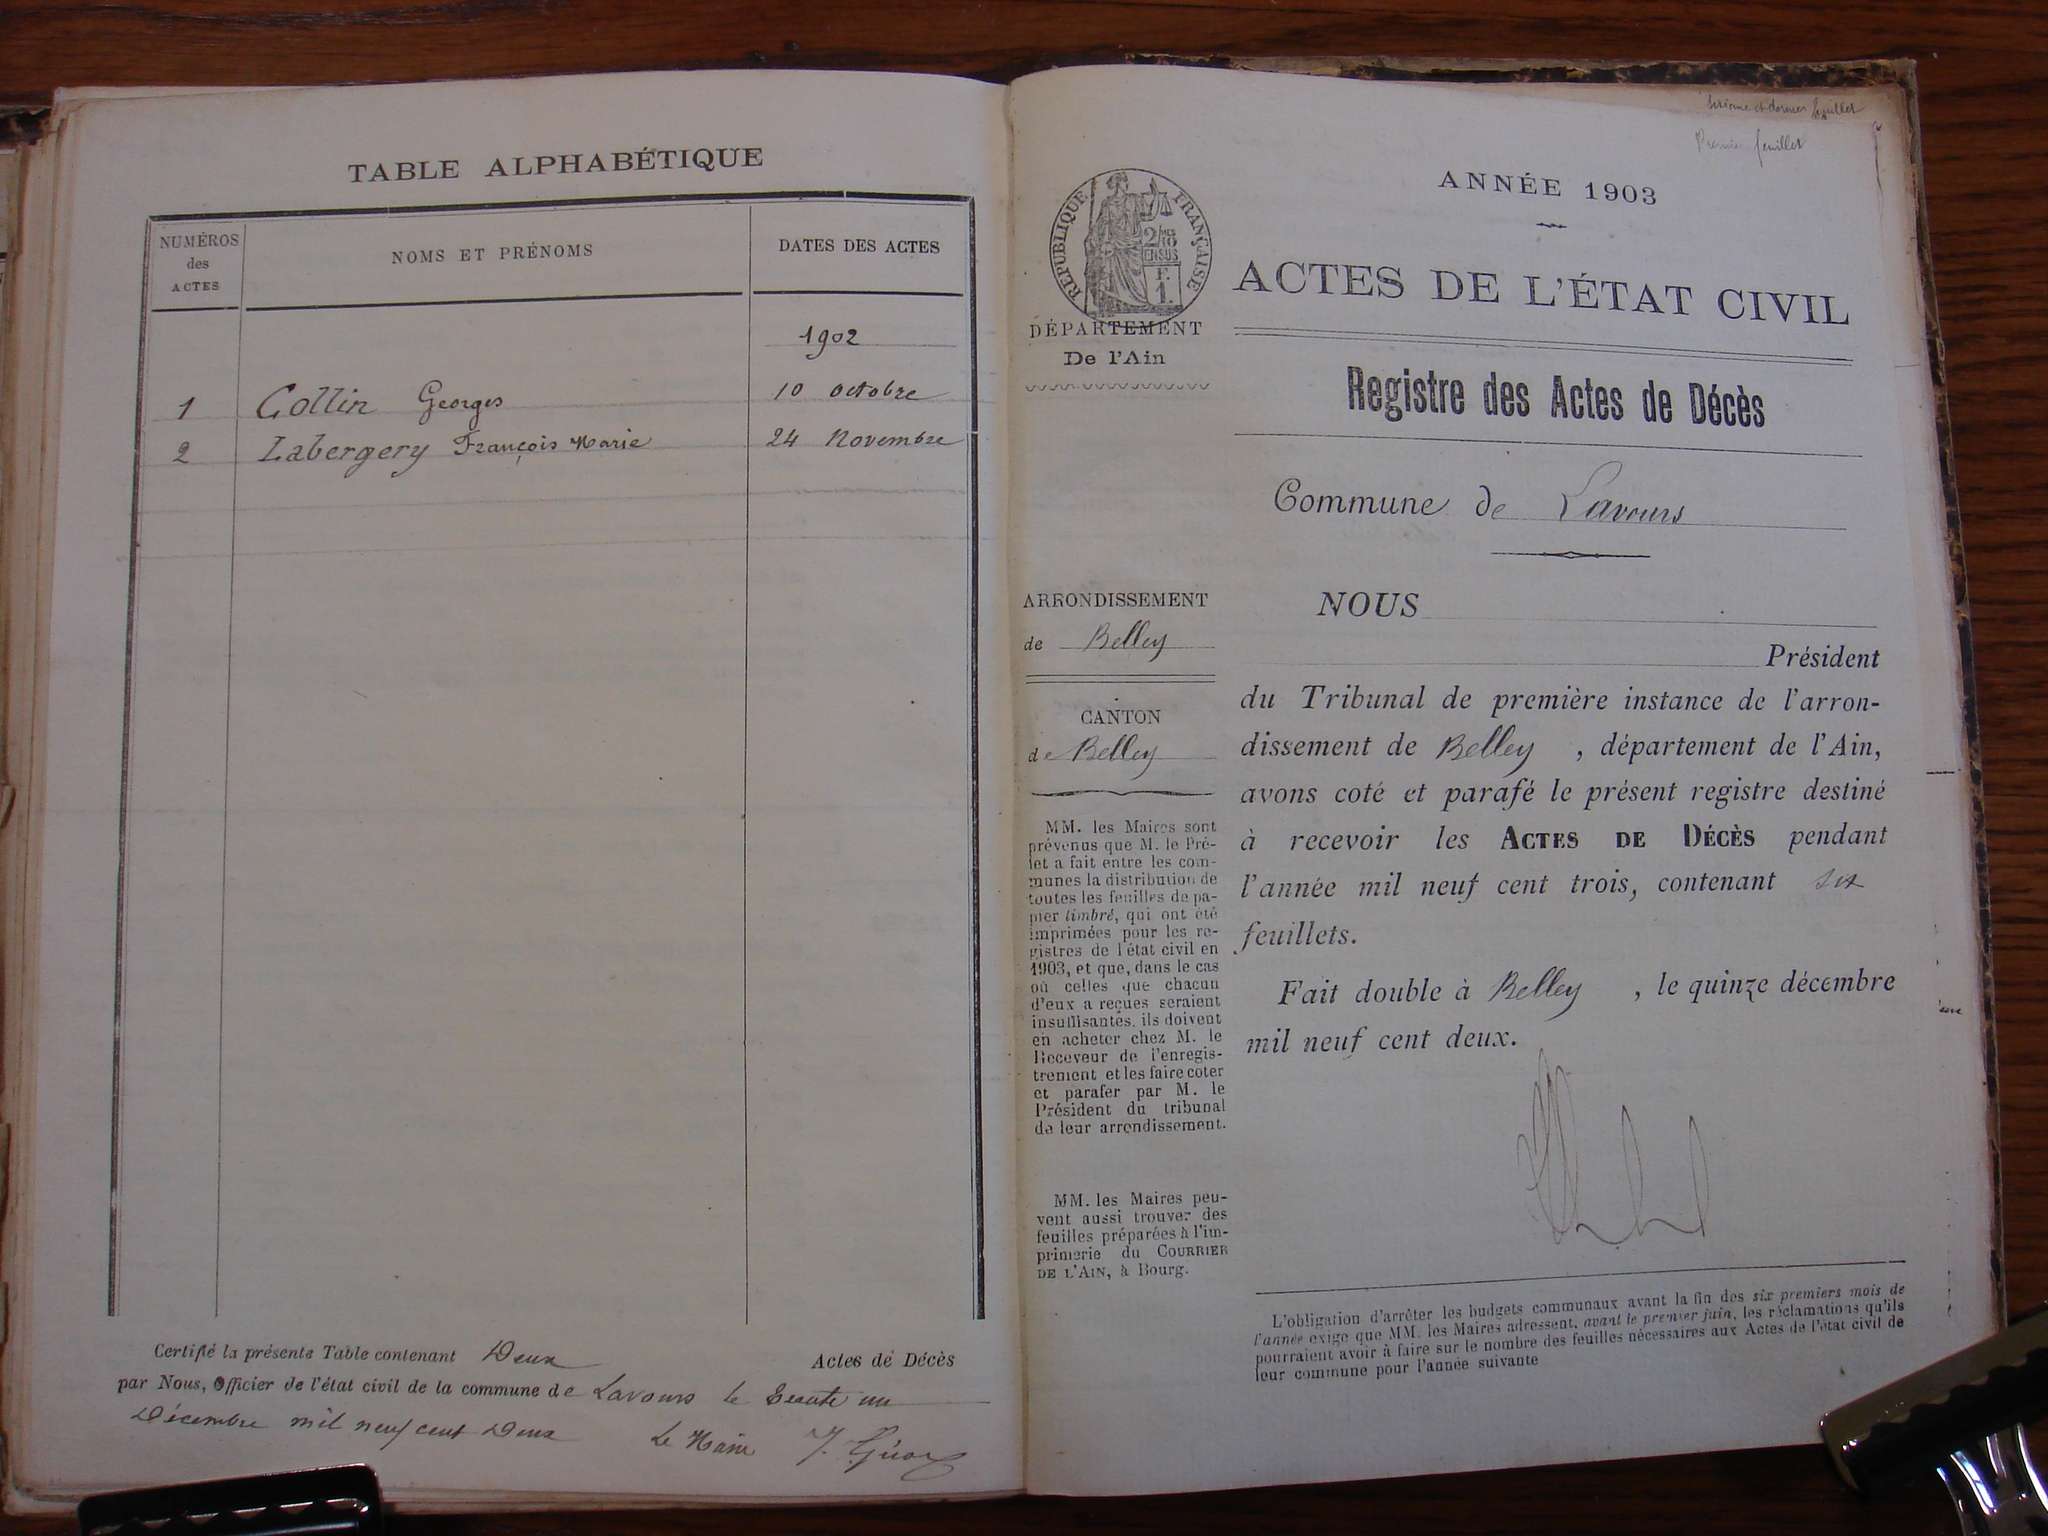 TABLE ALPHABÉTIQUE
NUMÉROS
des
ACTES
NOMS ET PRÉNOMS
DATES DES ACTES
1902
1 Collin Georges 10 octobre
2 Labergery François Marie 24 Novembre
Certifié la présente Table contenant Deux Actes de Décès
par Nous, Officier de l'état civil de la commune de Lavours le trente un
Décembre mil neuf cent Deux Le Maire
Premier feuillet
ANNÉE 1903
RÉPUBLIQUE FRANÇAISE
2/10
EN SUS
F.
1.
DÉPARTEMENT
De l'Ain
ARRONDISSEMENT
de Belley
CANTON
de Belley
MM. les Maires sont
prévenus que M. le Pré-
fet a fait entre les com-
munes la distribution de
toutes les feuilles de pa-
pier timbré, qui ont été
imprimées pour les re-
gistres de l'état civil en
1903, et que, dans le cas
où celles que chacun
d'eux a reçues seraient
insuffisantes, ils doivent
en acheter chez M. le
Receveur de l'enregis-
trement et les faire coter
et parafer par M. le
Président du tribunal
de leur arrondissement.
MM. les Maires peu-
vent aussi trouver des
feuilles préparées à l'im-
primerie du COURRIER
DE L'AIN, à Bourg.
ACTES DE L'ÉTAT CIVIL
Registre des Actes de Décès
Commune de Lavours
NOUS
Président
du Tribunal de première instance de l'arron-
dissement de Belley, département de l'Ain,
avons coté et parafé le présent registre destiné
à recevoir les ACTES DE DÉCÈS pendant
l'année mil neuf cent trois, contenant six
feuillets.
Fait double à Belley, le quinze décembre
mil neuf cent deux.
L'obligation d'arrêter les budgets communaux avant la fin des six premiers mois de
l'année exige que MM. les Maires adressent, avant le premier juin, les réclamations qu'ils
pourraient avoir à faire sur le nombre des feuilles nécessaires aux Actes de l'état civil de
leur commune pour l'année suivante